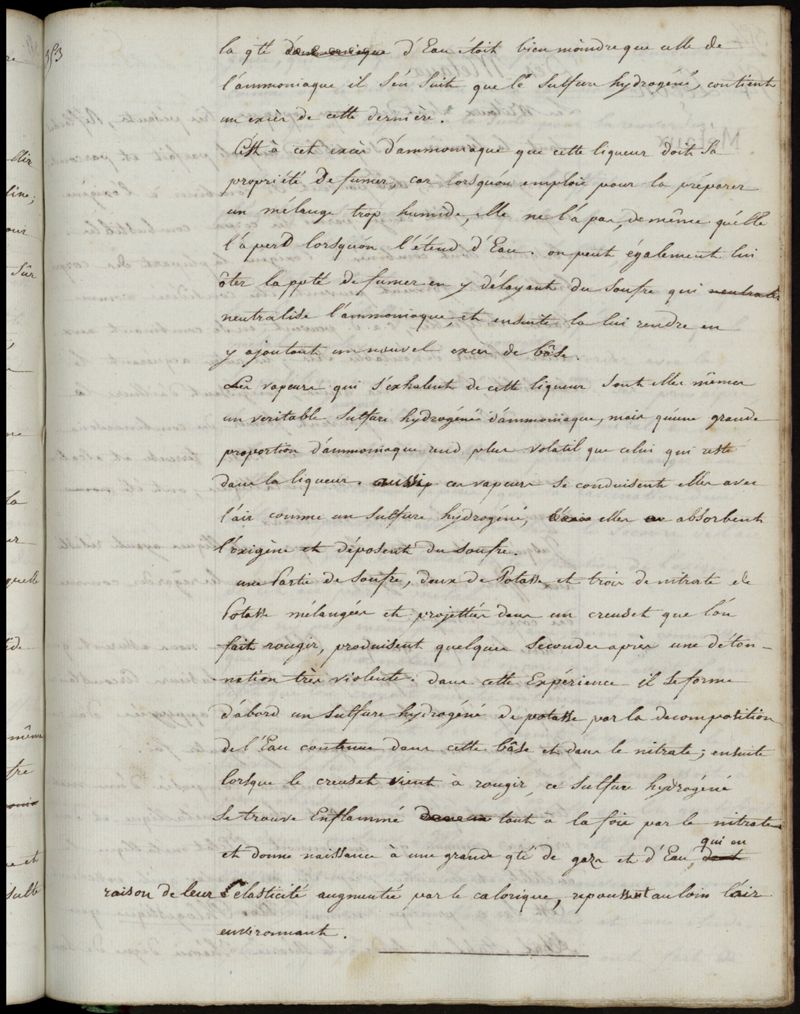 353
la qté d'ammoniaque d'Eau étoit bien moindre que celle de
l'ammoniaque il s'en suit que le sulfure hydrogéné, contient
un excès de cette dernière.
C'est à cet excès d'ammoniaque que cette liqueur doit sa
propriété de fumer, car lorsqu'on emploie pour la préparer
un mélange trop humide, elle ne l'a pas, de même qu'elle
l'a perd lorsqu'on l'étend d'Eau. on peut également lui
ôter la ppté de fumer en y délayant du soufre qui neutralise
neutralise l'ammoniaque, et ensuite la lui rendre en
y ajoutant un nouvel excès de bâse.
Les vapeurs qui s'exhalent de cette liqueur sont elles mêmes
un veritable sulfure hydrogéné d'ammoniaque, mais qu'une grande
proportion d'ammoniaque rend plus volatil que celui qui reste
dans la liqueur. aussi ces vapeurs se conduisent elles avec
l'air comme un sulfure hydrogéné, elles en absorbent
l'oxigène et déposent du soufre.
une Partie de soufre, deux de Potasse et trois de nitrate de
Potasse mélangées et projettées dans un creuset que l'on
fait rougir, produisent quelques secondes après une déton-
nation très violente. dans cette Expérience il se forme
d'abord un sulfure hydrogéné de potasse par la decomposition
de l'Eau contenue dans cette bâse et dans le nitrate; ensuite
lorsque le creuset vient à rougir, ce sulfure hydrogéné
se trouve Enflammé tout à la fois par le nitrate
et donne naissance à une grande qté de gazs et d'Eau, dont qui en
raison de leur élasticité augmentée par le calorique, repoussent au loin l'air
environnant.